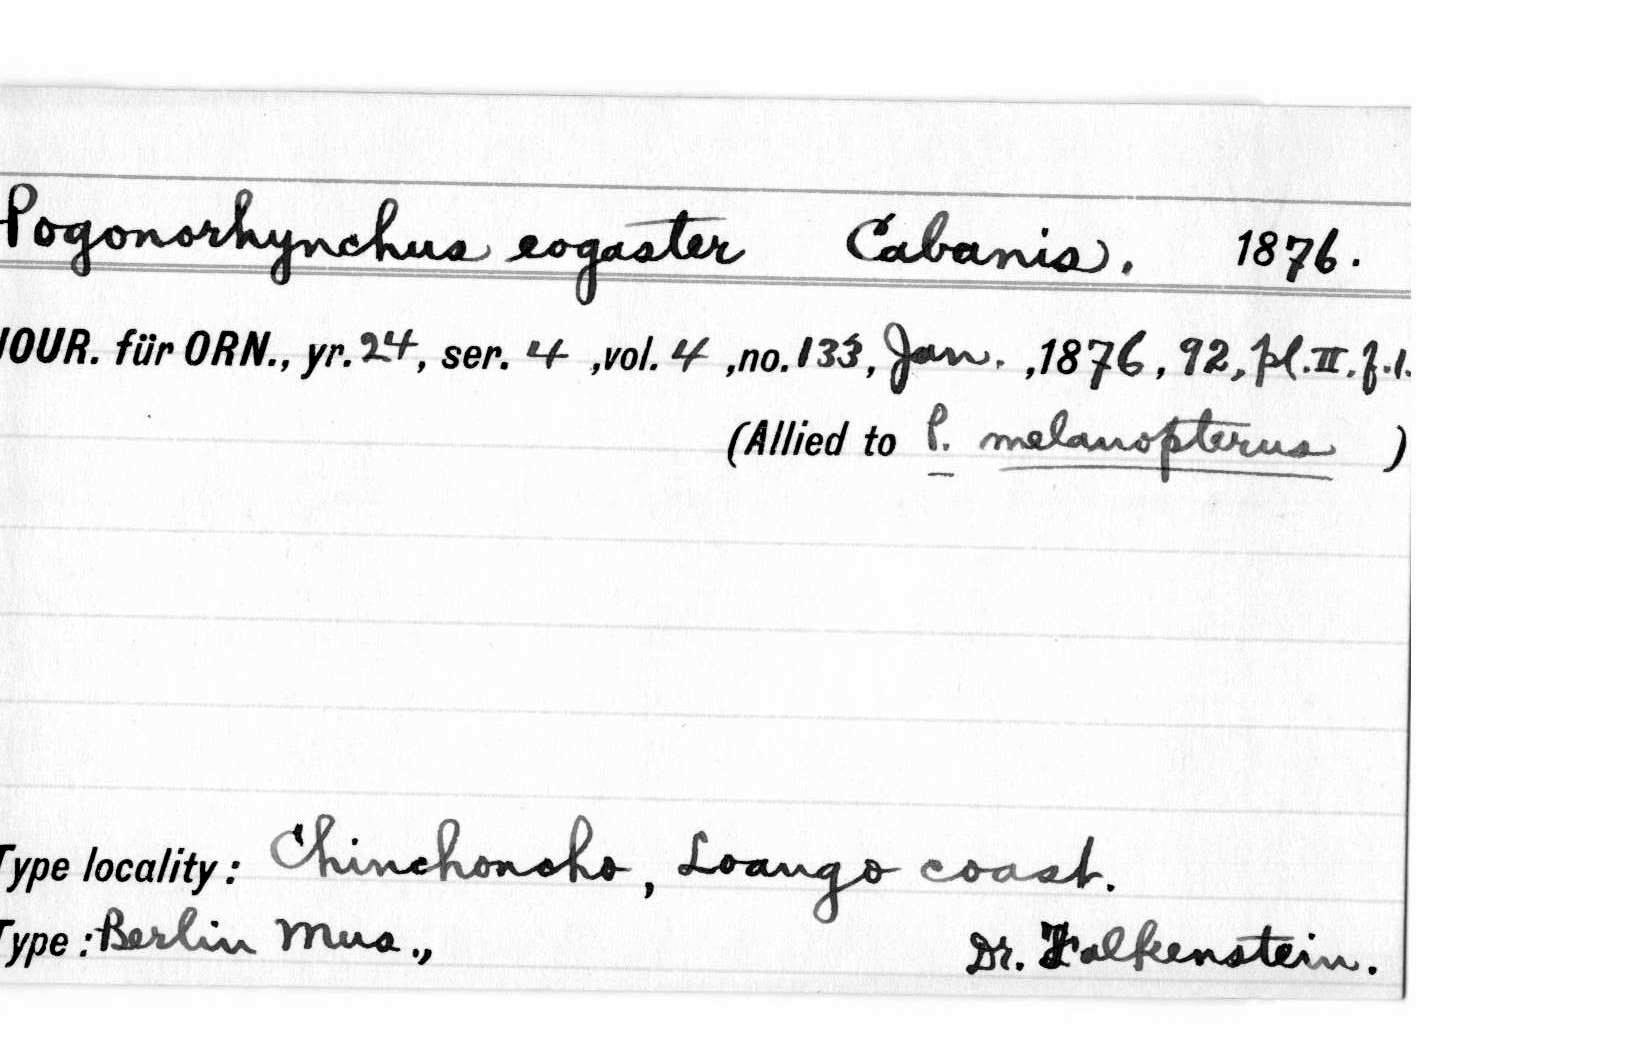 Pogonorhynchus eogaster Cabanis. 1876.
JOUR. für ORN., yr. 24, ser. 4, vol. 4, no. 133, Jan., 1876, 92, pl. II. f. 1.
(Allied to P. melanopterus)
Type locality: Chinchoncho, Loango coast.
Type: Berlin Mus., Dr. Falkenstein.